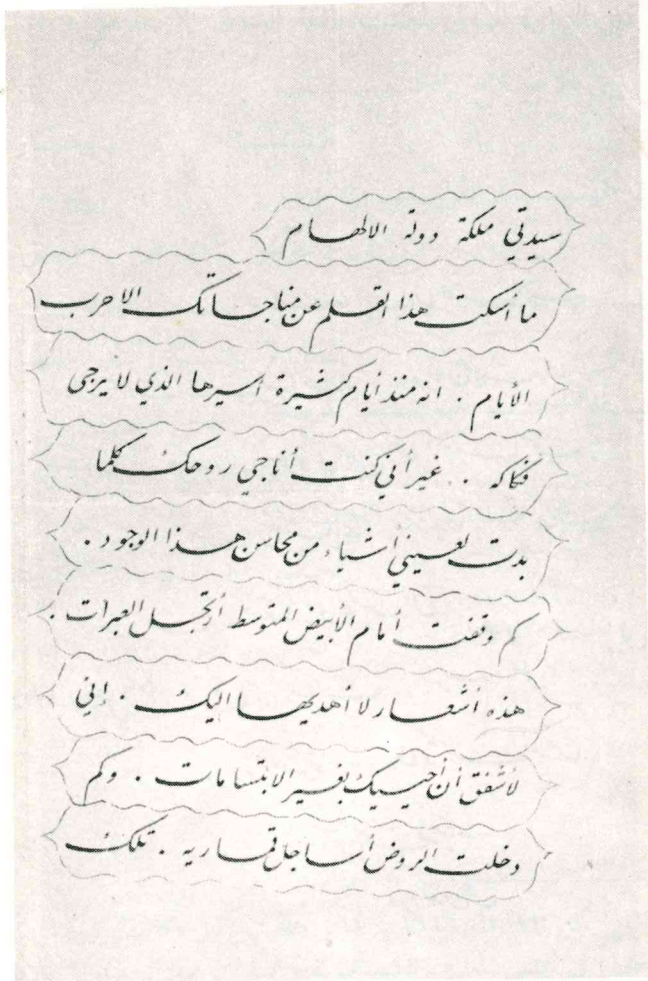 سيدتي ملكة دولة الالهام
ما أسكت هذا القلم عن مناجاتك الا حرب
الأيام . انه منذ أيام كثيرة اسيرها الذي لا يرجى
فكاكه . . غير أني كنت أناجي روحك كلما
بدت لعيني أشياء من محاسن هذا الوجود .
كم وقفت أمام الأبيض المتوسط أرتجل العبرات .
هذه أشعار لا أهديها اليك . إني
لأشفق أن أحييك بغير الابتسامات . وكم
دخلت الروض أساجل قماريه . تلك